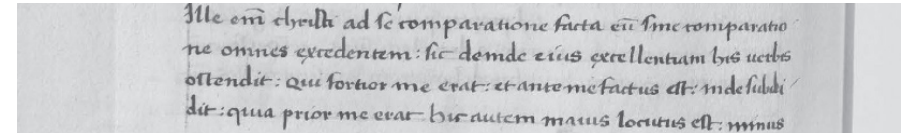 Ille em̅ christi ad se comparatione facta eu̅ sine comparatio
ne omnes excedentem: sic deinde eius excellentiam his uerbis
ostendit: Qui fortior me erat: et ante me factus est: inde subdi
dit: quia prior me erat hic autem maius locutus est: minus